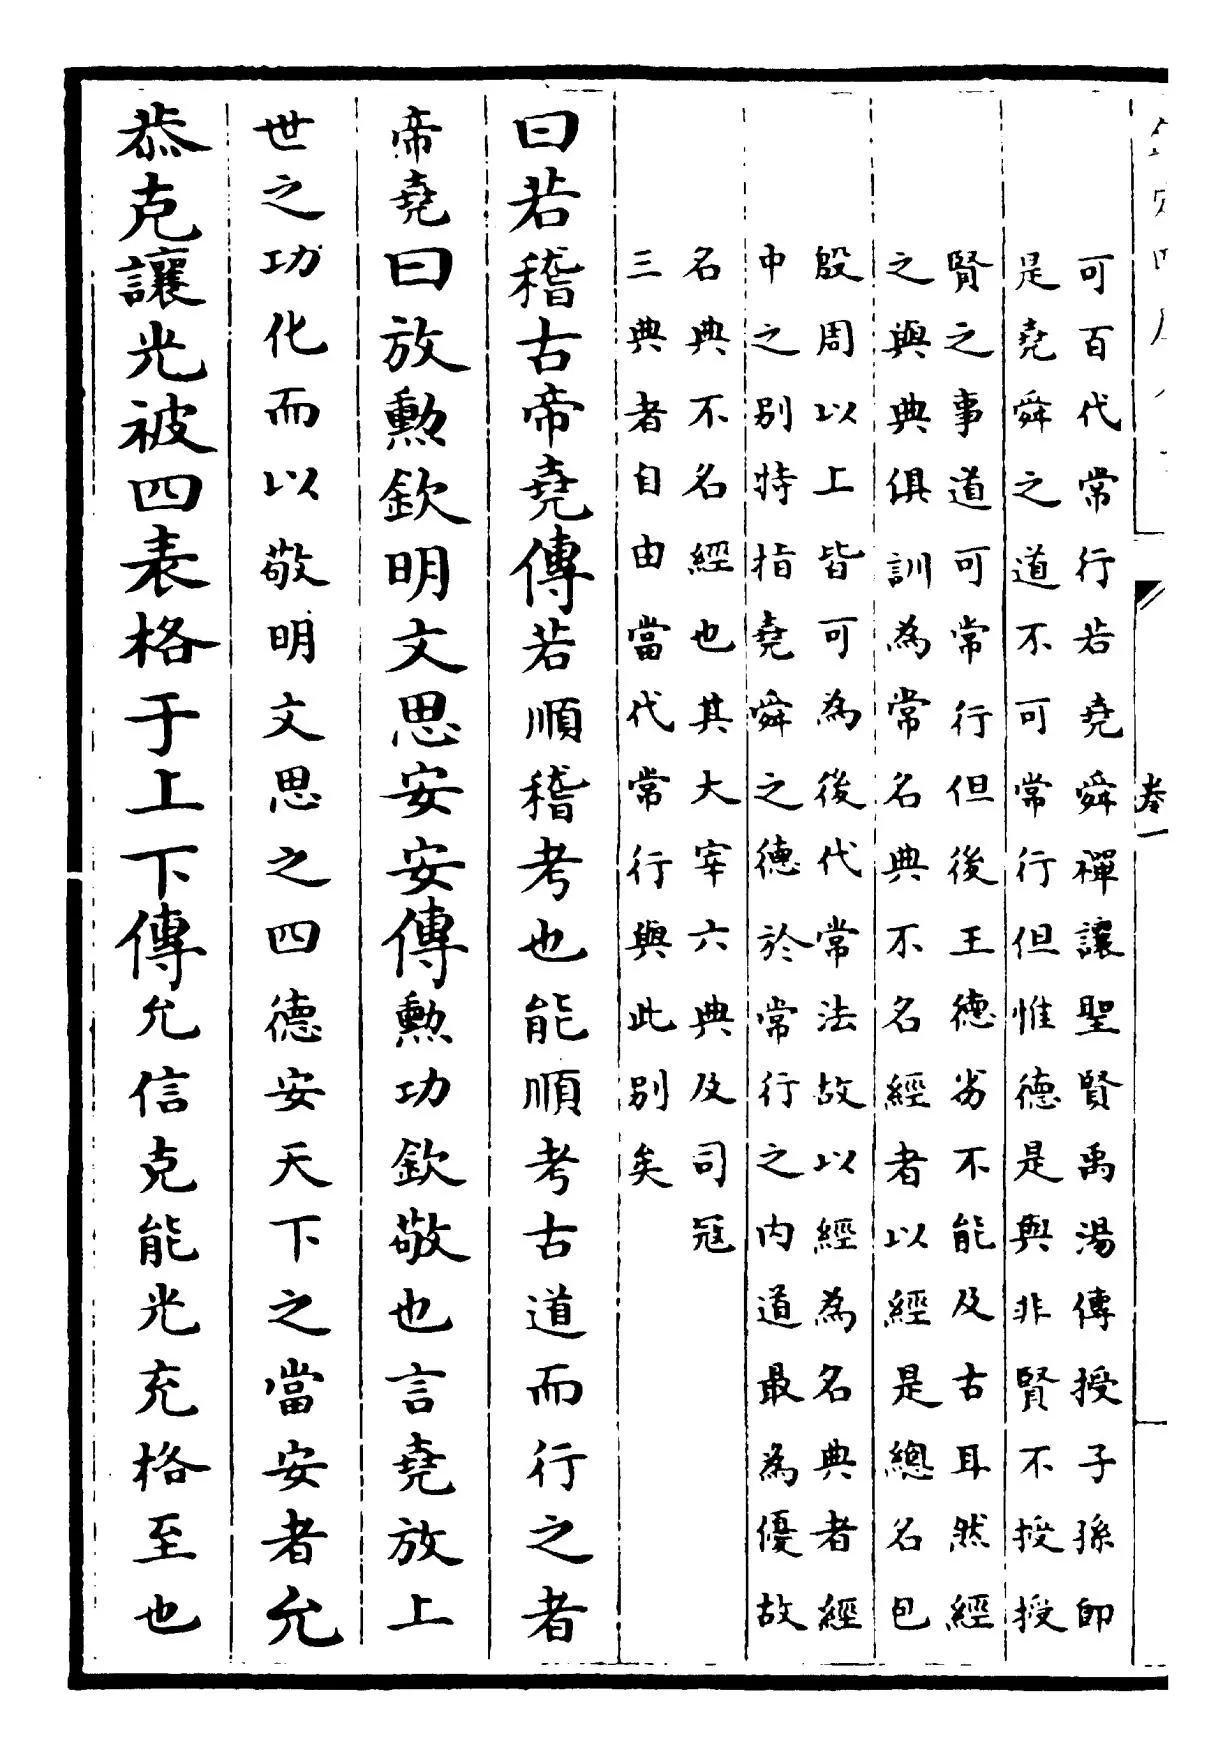 卷一
可百代常行若堯舜禪讓聖賢禹湯傳授子孫即
是堯舜之道不可常行但惟德是與非賢不授授
賢之事道可常行但後王德劣不能及古耳然經
之與典俱訓為常名典不名經者以經是總名包
殷周以上皆可為後代常法故以經為名典者經
中之別特指堯舜之德於常行之內道最為優故
名典不名經也其大宰六典及司冦
三典者自由當代常行與此別矣
曰若稽古帝堯傳若順稽考也能順考古道而行之者
帝堯曰放勲欽明文思安安傳勲功欽敬也言堯放上
世之功化而以敬明文思之四德安天下之當安者允
恭克讓光被四表格于上下傳允信克能光充格至也